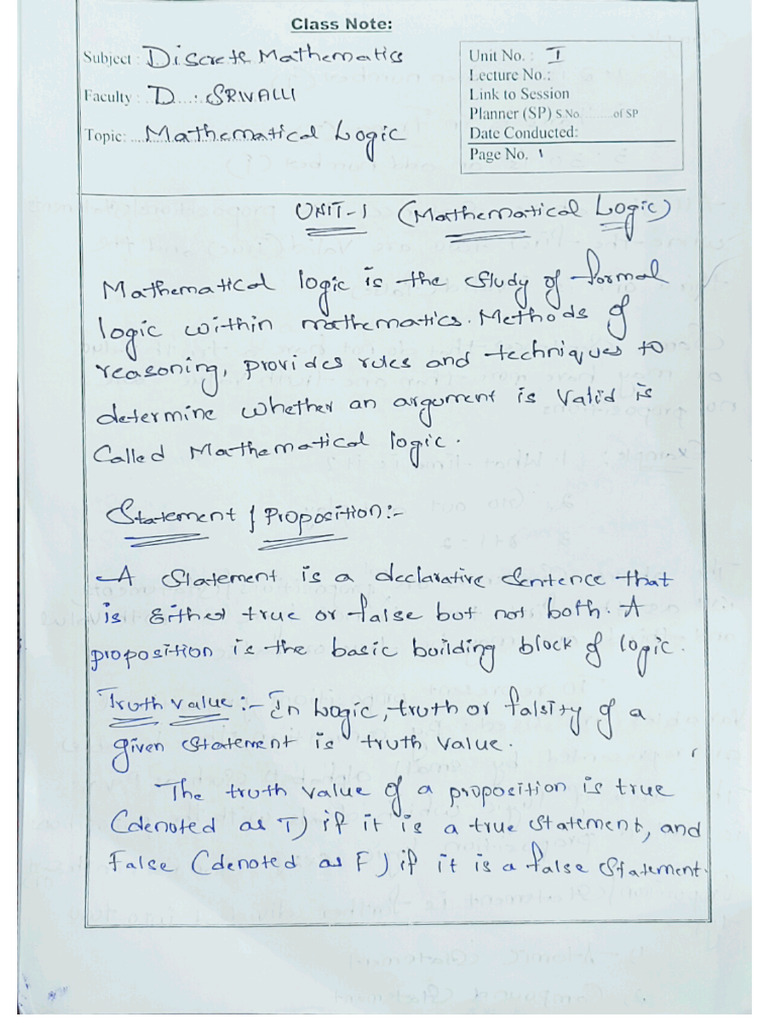 Class Note:
Subject : Discrete Mathematics
Unit No. : I
Lecture No.:
Faculty : D. SRIVALLI
Link to Session
Planner (SP) S.No ........of SP
Topic: Mathematical Logic
Date Conducted:
Page No. 1
UNIT-1 (Mathematical Logic)
Mathematical logic is the study of formal
logic within mathematics. Methods of
reasoning, provides rules and techniques to
determine whether an argument is valid is
Called Mathematical logic.
Statement / Proposition:-
A Statement is a declarative Sentence that
is Either true or false but not both. A
proposition is the basic building block of logic.
Truth value :- In Logic, truth or falsity of a
given statement is truth value.
The truth value of a proposition is true
(denoted as T) if it is a true statement, and
False (denoted as F) if it is a false statement.